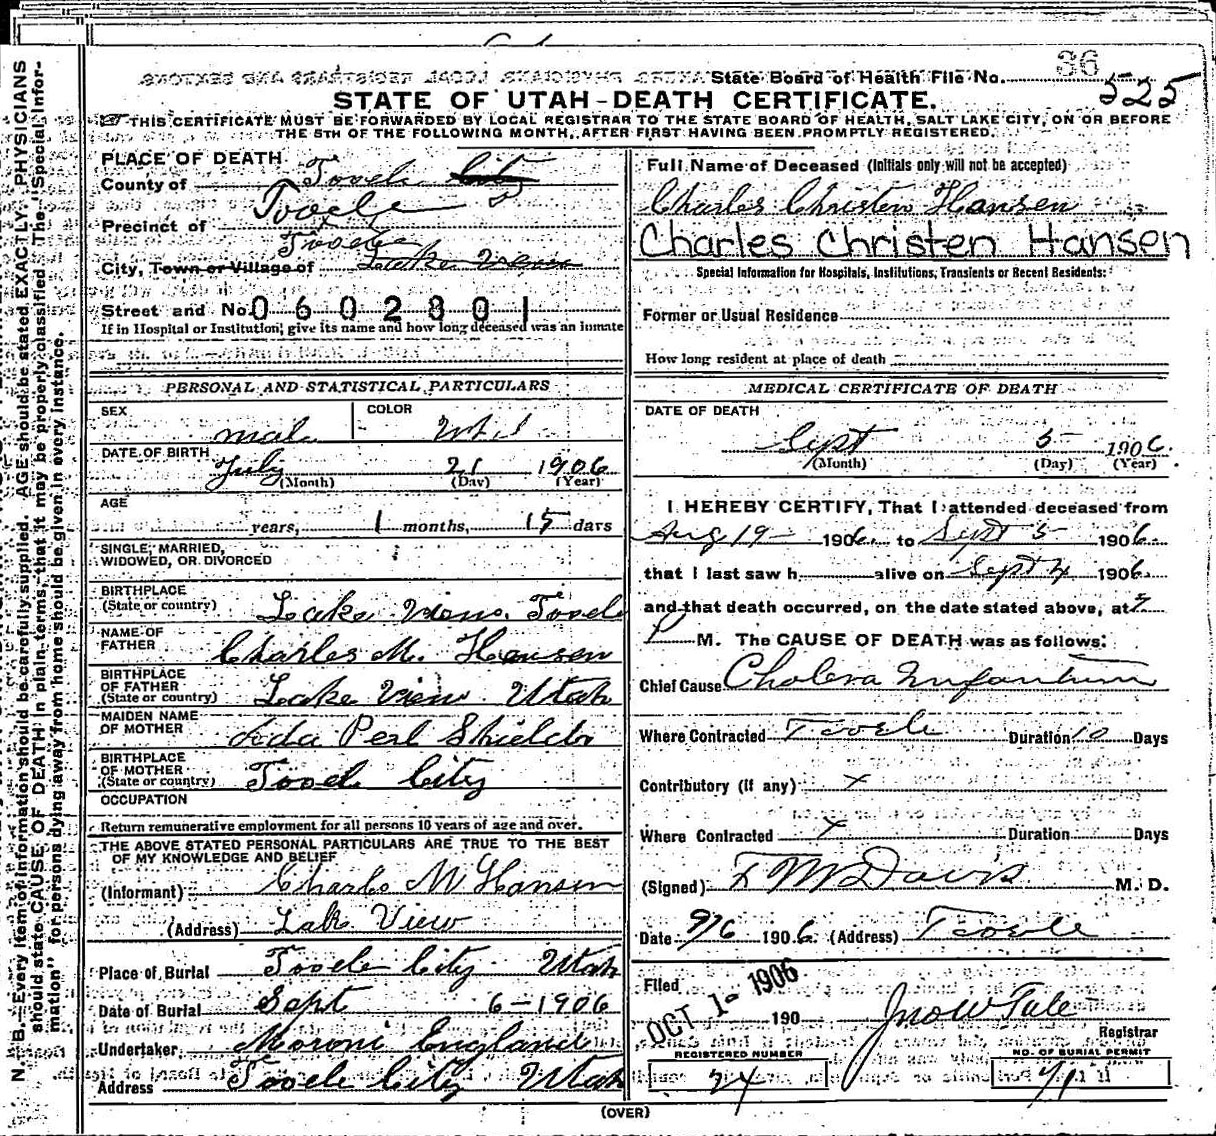 State Board of Health File No. 36
525
STATE OF UTAH-DEATH CERTIFICATE.
THIS CERTIFICATE MUST BE FORWARDED BY LOCAL REGISTRAR TO THE STATE BOARD OF HEALTH, SALT LAKE CITY, ON OR BEFORE
THE 5TH OF THE FOLLOWING MONTH, AFTER FIRST HAVING BEEN PROMPTLY REGISTERED.
N. B.—Every item of information should be carefully supplied. AGE should be stated EXACTLY. PHYSICIANS
should state CAUSE OF DEATH in plain terms, that it may be properly classified. The "Special Infor-
mation" for persons dying away from home should be given in every instance.
PLACE OF DEATH
County of Tooele City
Precinct of Tooele
Tooele
City, Town or Village of Lake View
Street and No. 0602801
If in Hospital or Institution, give its name and how long deceased was an inmate
PERSONAL AND STATISTICAL PARTICULARS
SEX male COLOR
DATE OF BIRTH July 21 1906
(Month) (Day) (Year)
AGE
years, 1 months, 15 days
SINGLE, MARRIED,
WIDOWED, OR DIVORCED
BIRTHPLACE
(State or country) Lake View. Tooele
NAME OF
FATHER Charles M. Hansen
BIRTHPLACE
OF FATHER
(State or country) Lake View Utah
MAIDEN NAME
OF MOTHER Ada Perl Shields
BIRTHPLACE
OF MOTHER
(State or country) Tooele City
OCCUPATION
Return remunerative employment for all persons 10 years of age and over.
THE ABOVE STATED PERSONAL PARTICULARS ARE TRUE TO THE BEST
OF MY KNOWLEDGE AND BELIEF
(Informant) Charles M Hansen
(Address) Lake View
Place of Burial Tooele City Utah
Date of Burial Sept 6-1906
Undertaker Moroni England
Address Tooele City Utah
Full Name of Deceased (Initials only will not be accepted)
Charles Christen Hansen
Charles Christen Hansen
Special Information for Hospitals, Institutions, Transients or Recent Residents:
Former or Usual Residence
How long resident at place of death
MEDICAL CERTIFICATE OF DEATH
DATE OF DEATH
Sept 5 1906
(Month) (Day) (Year)
I HEREBY CERTIFY, That I attended deceased from
Aug 19 1906 to Sept 5 1906
that I last saw h alive on Sept 4 1906
and that death occurred, on the date stated above, at 7
P M. The CAUSE OF DEATH was as follows:
Chief Cause Cholera Infantum
Where Contracted Tooele Duration 10 Days
Contributory (if any) x
Where Contracted x Duration Days
(Signed) F M Davis M. D.
Date 9/6 1906 (Address) Tooele
Filed
OCT 1- 1906
190 Jno W Tate
Registrar
REGISTERED NUMBER 74
NO. OF BURIAL PERMIT 71
(OVER)